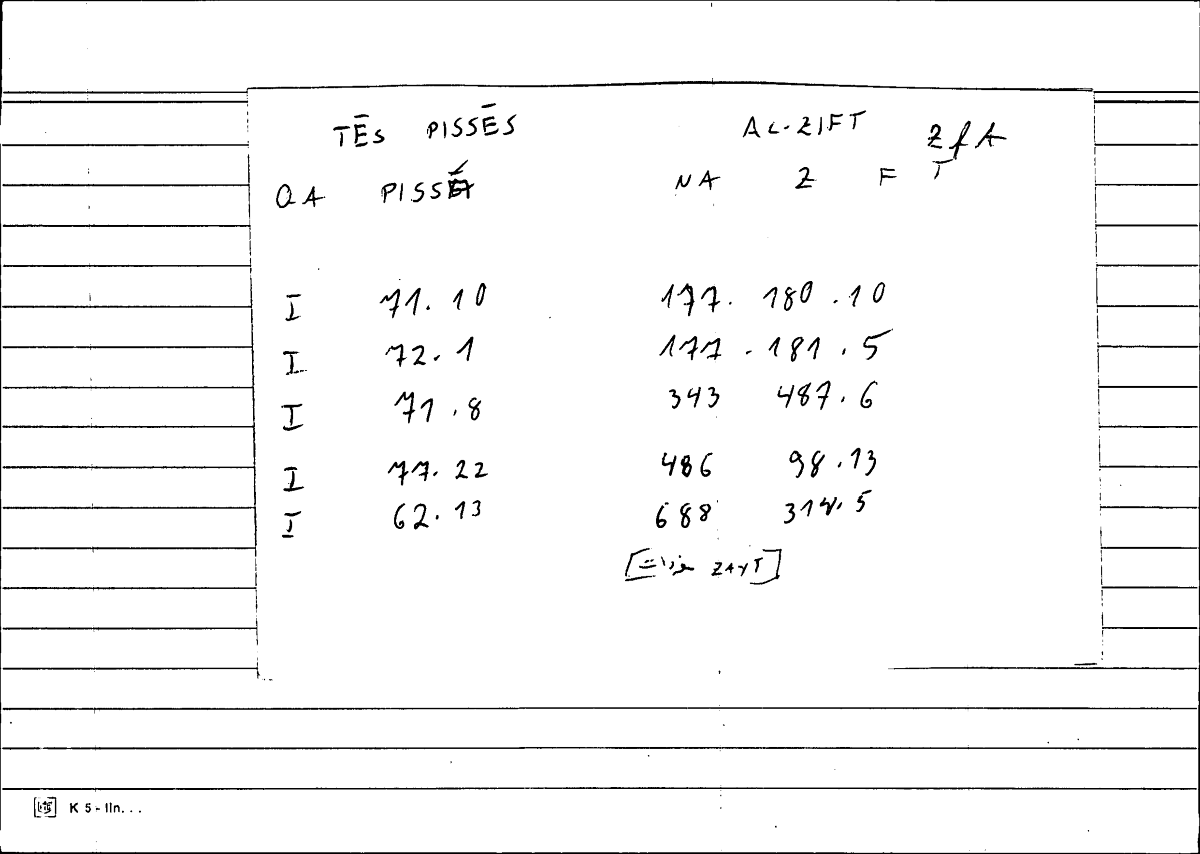 TĒS PISSĒS AL-ZIFT ZfA
QA PISSÉ NA Z F T
I 71.10 177. 180.10
I 72.1 177. 181.5
I 71.8 343 487.6
I 77.22 486 98.13
I 62.13 688 314.5
[ ZAYT]
K 5 - lin. . .